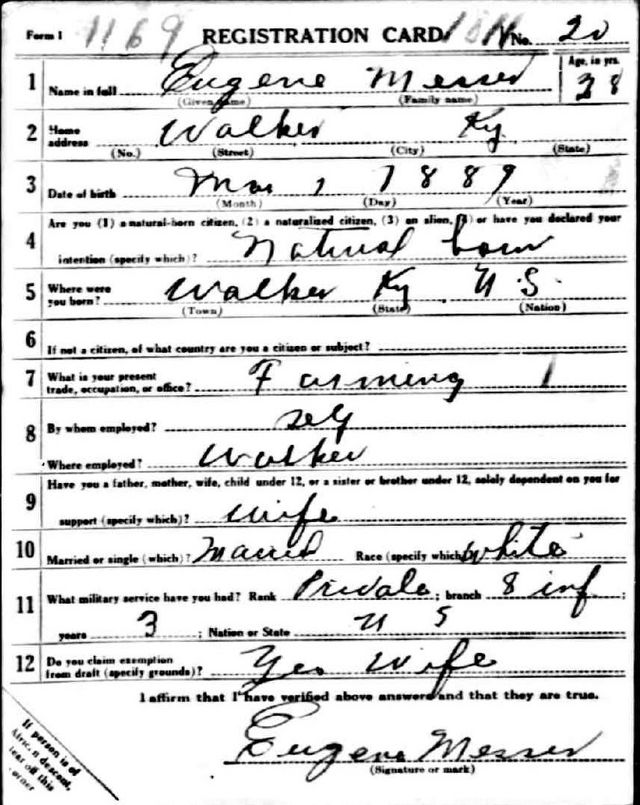 Form 1 1169 REGISTRATION CARD No. 20
1 Name in full Eugene Messer Age, in yrs. 28
(Given name) (Family name)
2 Home address Walker Ky
(No.) (Street) (City) (State)
3 Date of birth Mar 1 1889
(Month) (Day) (Year)
4 Are you (1) a natural-born citizen, (2) a naturalized citizen, (3) an alien, (4) or have you declared your
intention (specify which)? Natural born
5 Where were you born? Walker Ky U.S.
(Town) (State) (Nation)
6 If not a citizen, of what country are you a citizen or subject?
7 What is your present trade, occupation, or office? Farming 1
8 By whom employed? self
Where employed? Walker
9 Have you a father, mother, wife, child under 12, or a sister or brother under 12, solely dependent on you for
support (specify which)? wife
10 Married or single (which)? Married Race (specify which)? white
11 What military service have you had? Rank Private ; branch 8 inf ;
years 3 ; Nation or State U S
12 Do you claim exemption from draft (specify grounds)? Yes wife
I affirm that I have verified above answers and that they are true.
Eugene Messer
(Signature or mark)
If person is of
African descent,
tear off this
corner